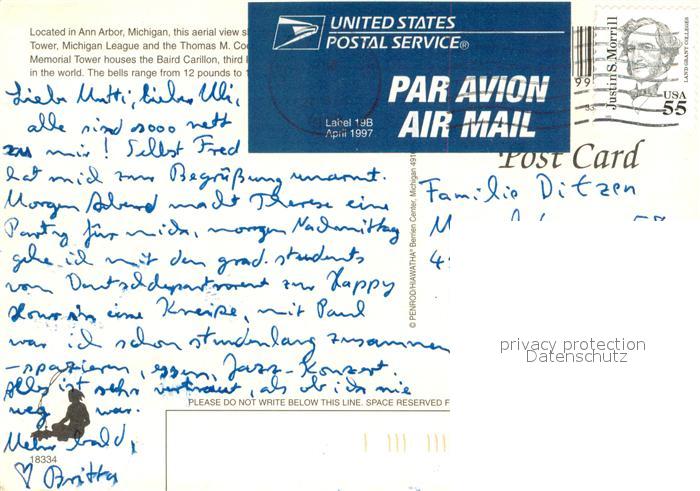 Located in Ann Arbor, Michigan, this aerial view s
Tower, Michigan League and the Thomas M. Coo
Memorial Tower houses the Baird Carillon, third l
in the world. The bells range from 12 pounds to 1
UNITED STATES
POSTAL SERVICE®
PAR AVION
AIR MAIL
Label 19B
April 1997
99
Justin S. Morrill
LAND-GRANT COLLEGES
USA
55
Post Card
Liebe Mutti, lieber Uli,
alle sind sooo nett
zu mir! Selbst Fred
hat mich zur Begrüßung umarmt.
Morgen Abend macht Therese eine
Party für mich, morgen Nachmittag
gehe ich mit den grad. students
vom Deutschdepartment zur Happy
Hour in eine Kneipe, mit Paul
war ich schon stundenlang zusammen
- spazieren, essen, Jazz-Konzert.
Alles ist sehr vertraut, als ob ich nie
weg war.
Mehr bald,
♡ Britta
Familie Ditzen
© PENROD/HIAWATHA® Berrien Center, Michigan 491
privacy protection
Datenschutz
PLEASE DO NOT WRITE BELOW THIS LINE. SPACE RESERVED F
18334